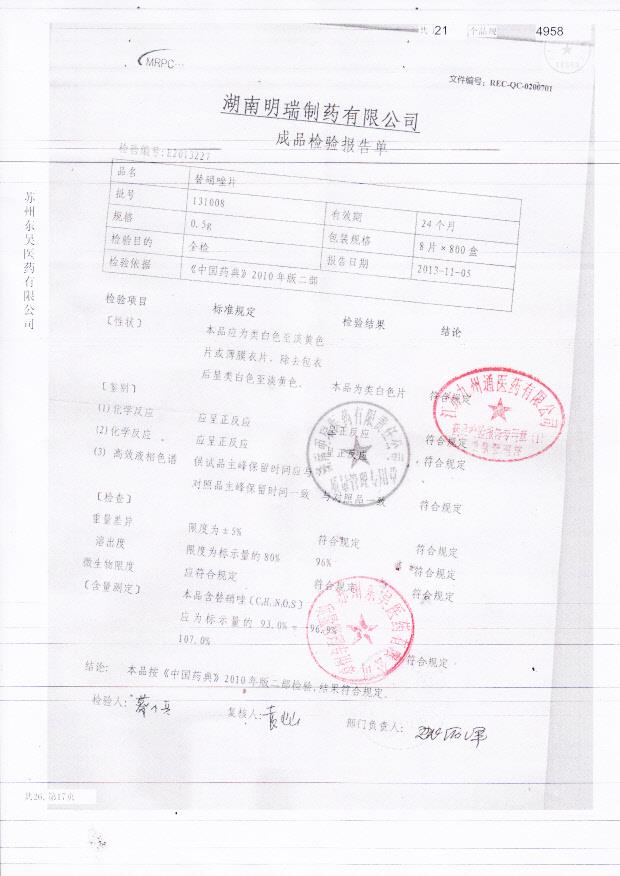 共 21 个品规 4958
MRPC
文件编号：REC-QC-0200701
湖南明瑞制药有限公司
成品检验报告单
检验编号:E2013227
品名 替硝唑片
批号 131008 有效期 24 个月
规格 0.5g 包装规格 8 片×800 盒
检验目的 全检 报告日期 2013-11-05
检验依据 《中国药典》2010 年版二部
检验项目 标准规定 检验结果 结论
〔性状〕 本品应为类白色至淡黄色
片或薄膜衣片，除去包衣
后显类白色至淡黄色。 本品为类白色片 符合规定
〔鉴别〕
(1)化学反应 应呈正反应 呈正反应 符合规定
(2)化学反应 应呈正反应 正反应 符合规定
(3) 高效液相色谱 供试品主峰保留时间应与
对照品主峰保留时间一致 与对照品一致 符合规定
〔检查〕
重量差异 限度为±5% 符合规定 符合规定
溶出度 限度为标示量的 80% 96% 符合规定
微生物限度 应符合规定 符合规定 符合规定
〔含量测定〕 本品含替硝唑
应为标示量的 93.0%～ 96.9%
107.0% 符合规定
结论: 本品按《中国药典》2010 年版二部检验,结果符合规定.
检验人:
复核人:
部门负责人:
共26, 第17页
苏州东吴医药有限公司
江苏九州通医药有限公司
苏州东吴医药有限公司